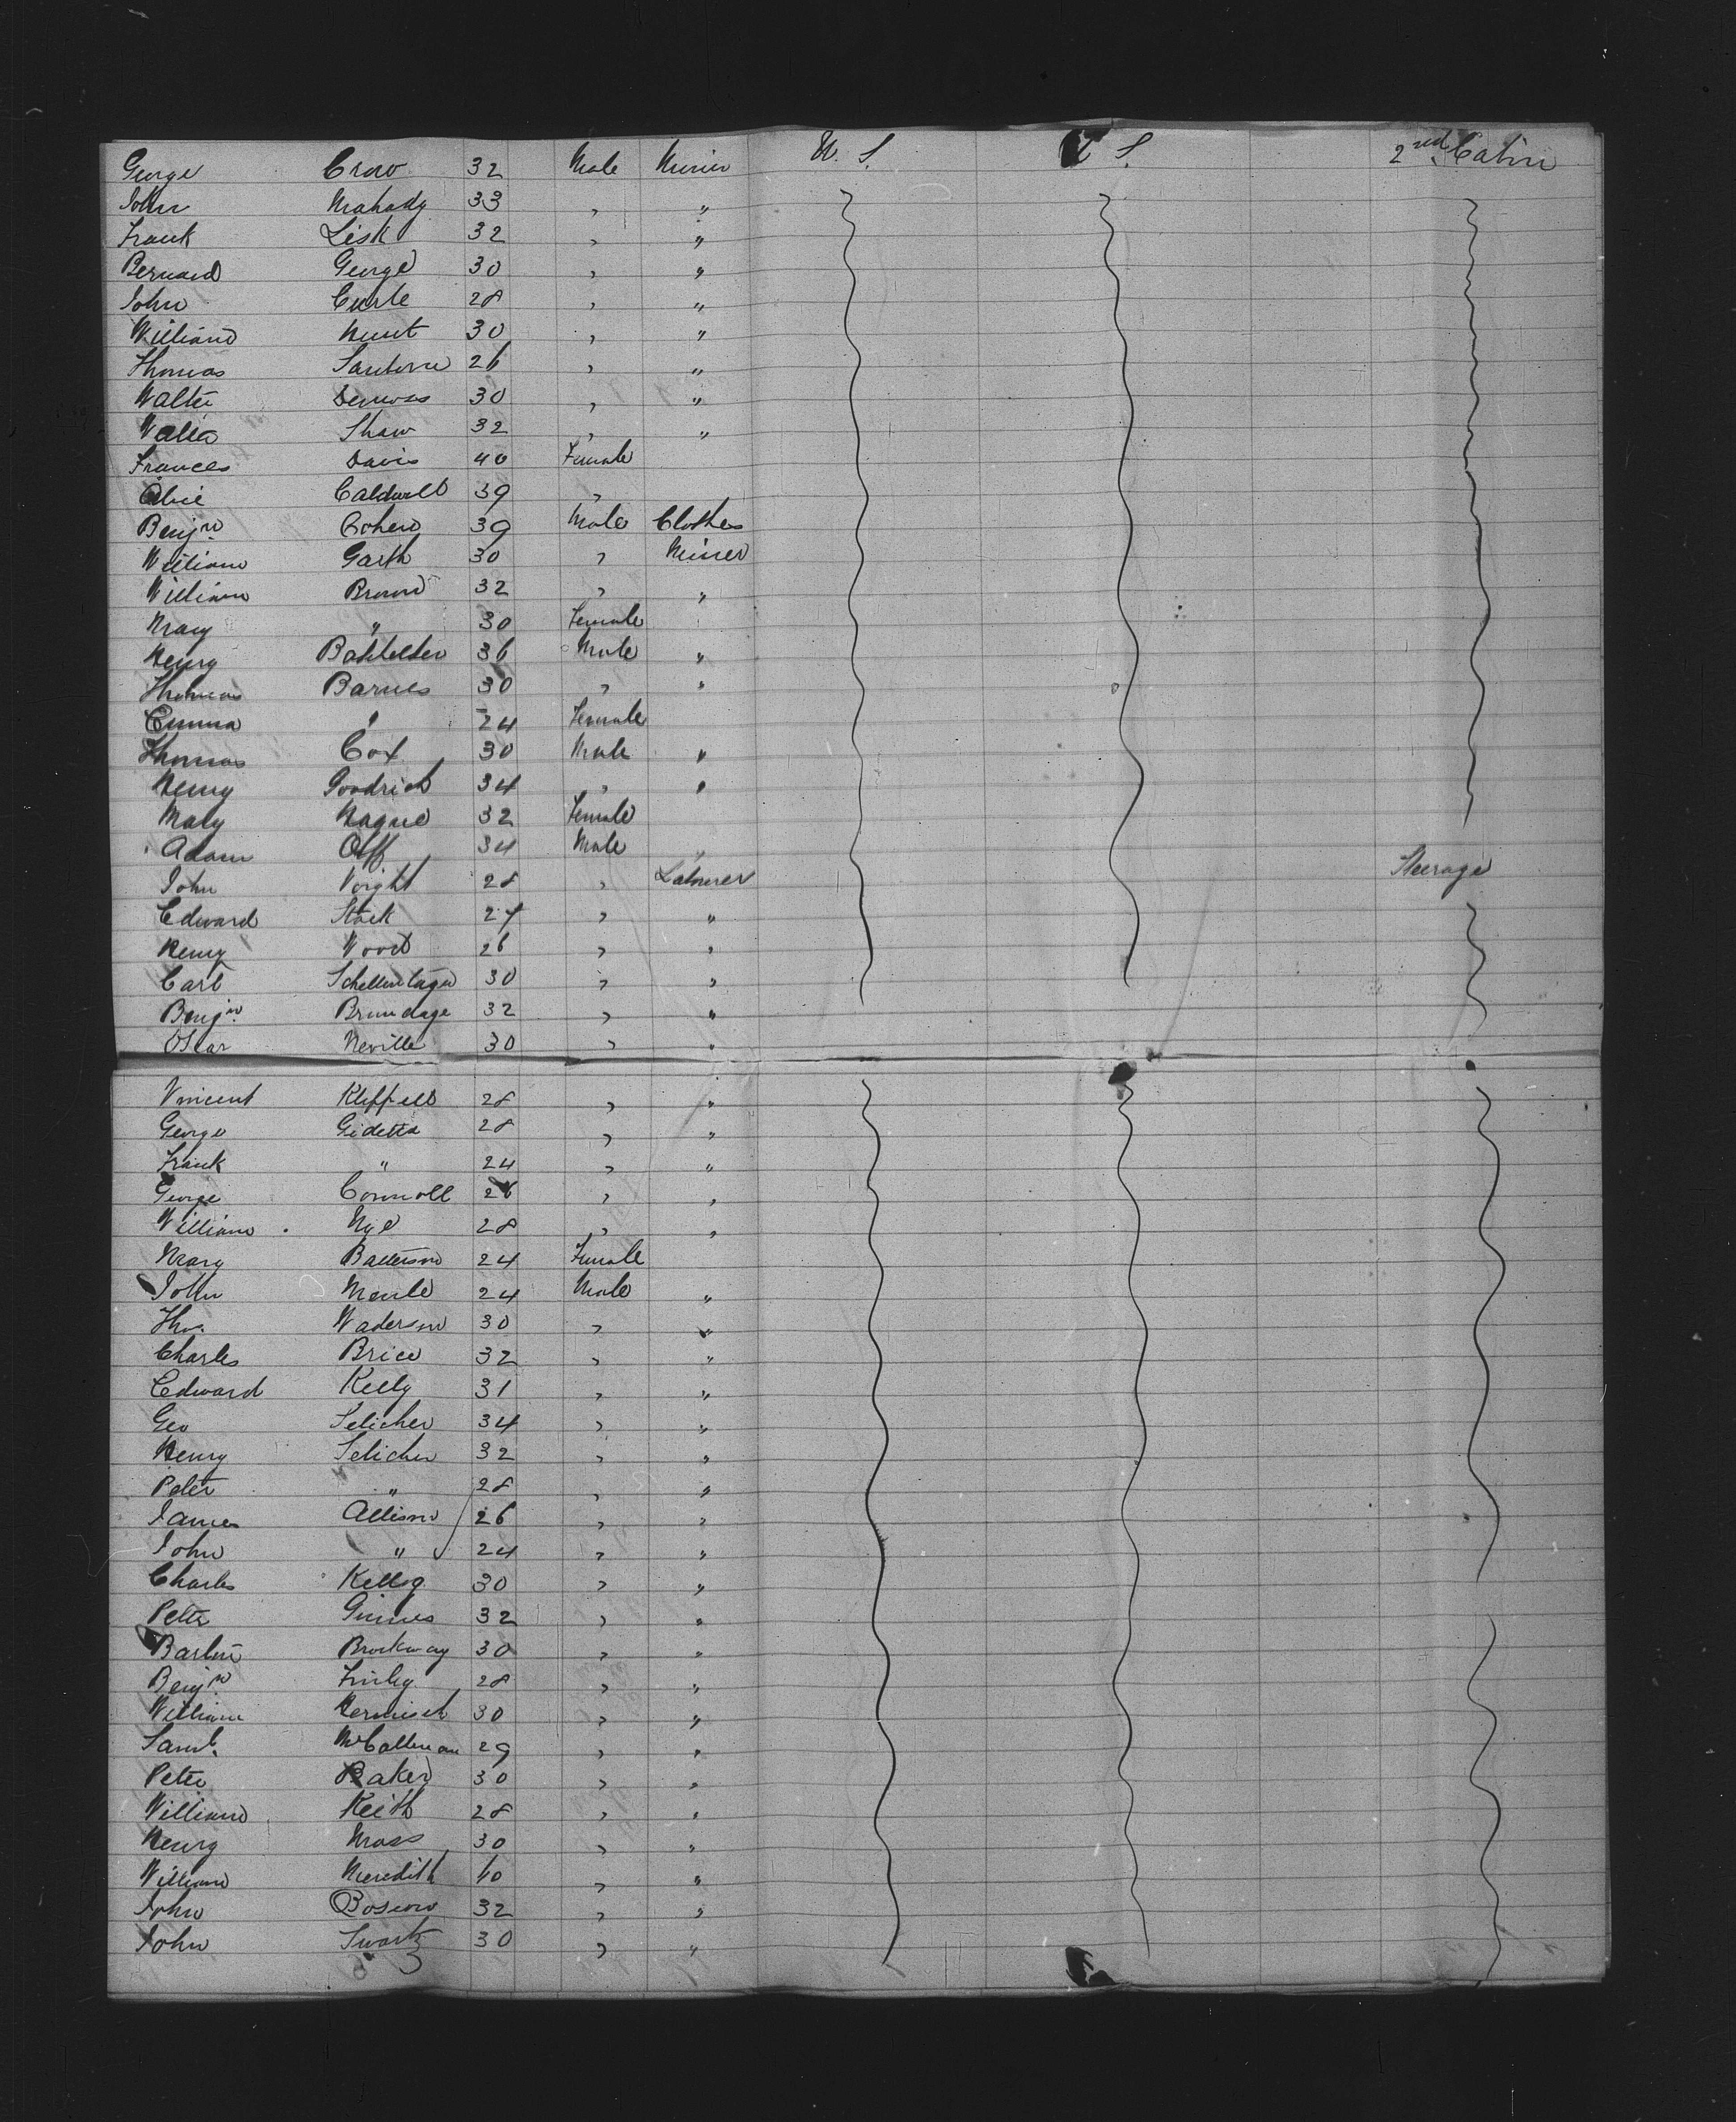 George Crow 32 Male Miner U. S. U S. 2nd Cabin
John Mahady 33 " "
Frank Lisk 32 " "
Bernard George 30 " "
John Curle 28 " "
William Hunt 30 " "
Thomas Santorn 26 " "
Walter 30 " "
Walter Shaw 32 " "
Frances Davis 40 Female
Alice Caldwell 39 "
Benjn Cohen 39 Male Clother
William Garth 30 " Miner
William Brown 32 " "
Mary " 30 Female
Henry Bahlelder 36 Male "
Thomas Barnes 30 " "
Emma " 24 Female
Thomas Cox 30 Male "
Henry Goodrich 34 " "
Mary Hague 32 Female
Adam Off 34 Male "
John Voight 28 " Laborer Steerage
Edward Stock 27 " "
Henry Wood 26 " "
Carl Schellentager 30 " "
Benjn Brundage 32 " "
Oscar Neville 30 " "
Vincent Kleffell 28 " "
George Gidetta 28 " "
Frank " 24 " "
George Connoll 26 " "
William Nye 28 " "
Mary Batterson 24 Female
John Merile 24 Male "
Thos. Waderson 30 " "
Charles Brice 32 " "
Edward Kelly 31 " "
Geo Selicher 34 " "
Henry Selicher 32 " "
Peter " 28 " "
James Allison 26 " "
John " 24 " "
Charles Kellog 30 " "
Peter Grimes 32 " "
Brockway 30 " "
Benjn Finley 28 " "
William Hernisch 30 " "
Saml. McCalleman 29 " "
Peter Baker 30 " "
William Keith 28 " "
Henry Moss 30 " "
William Meredith 40 " "
John Boscow 32 " "
John Swartz 30 " "